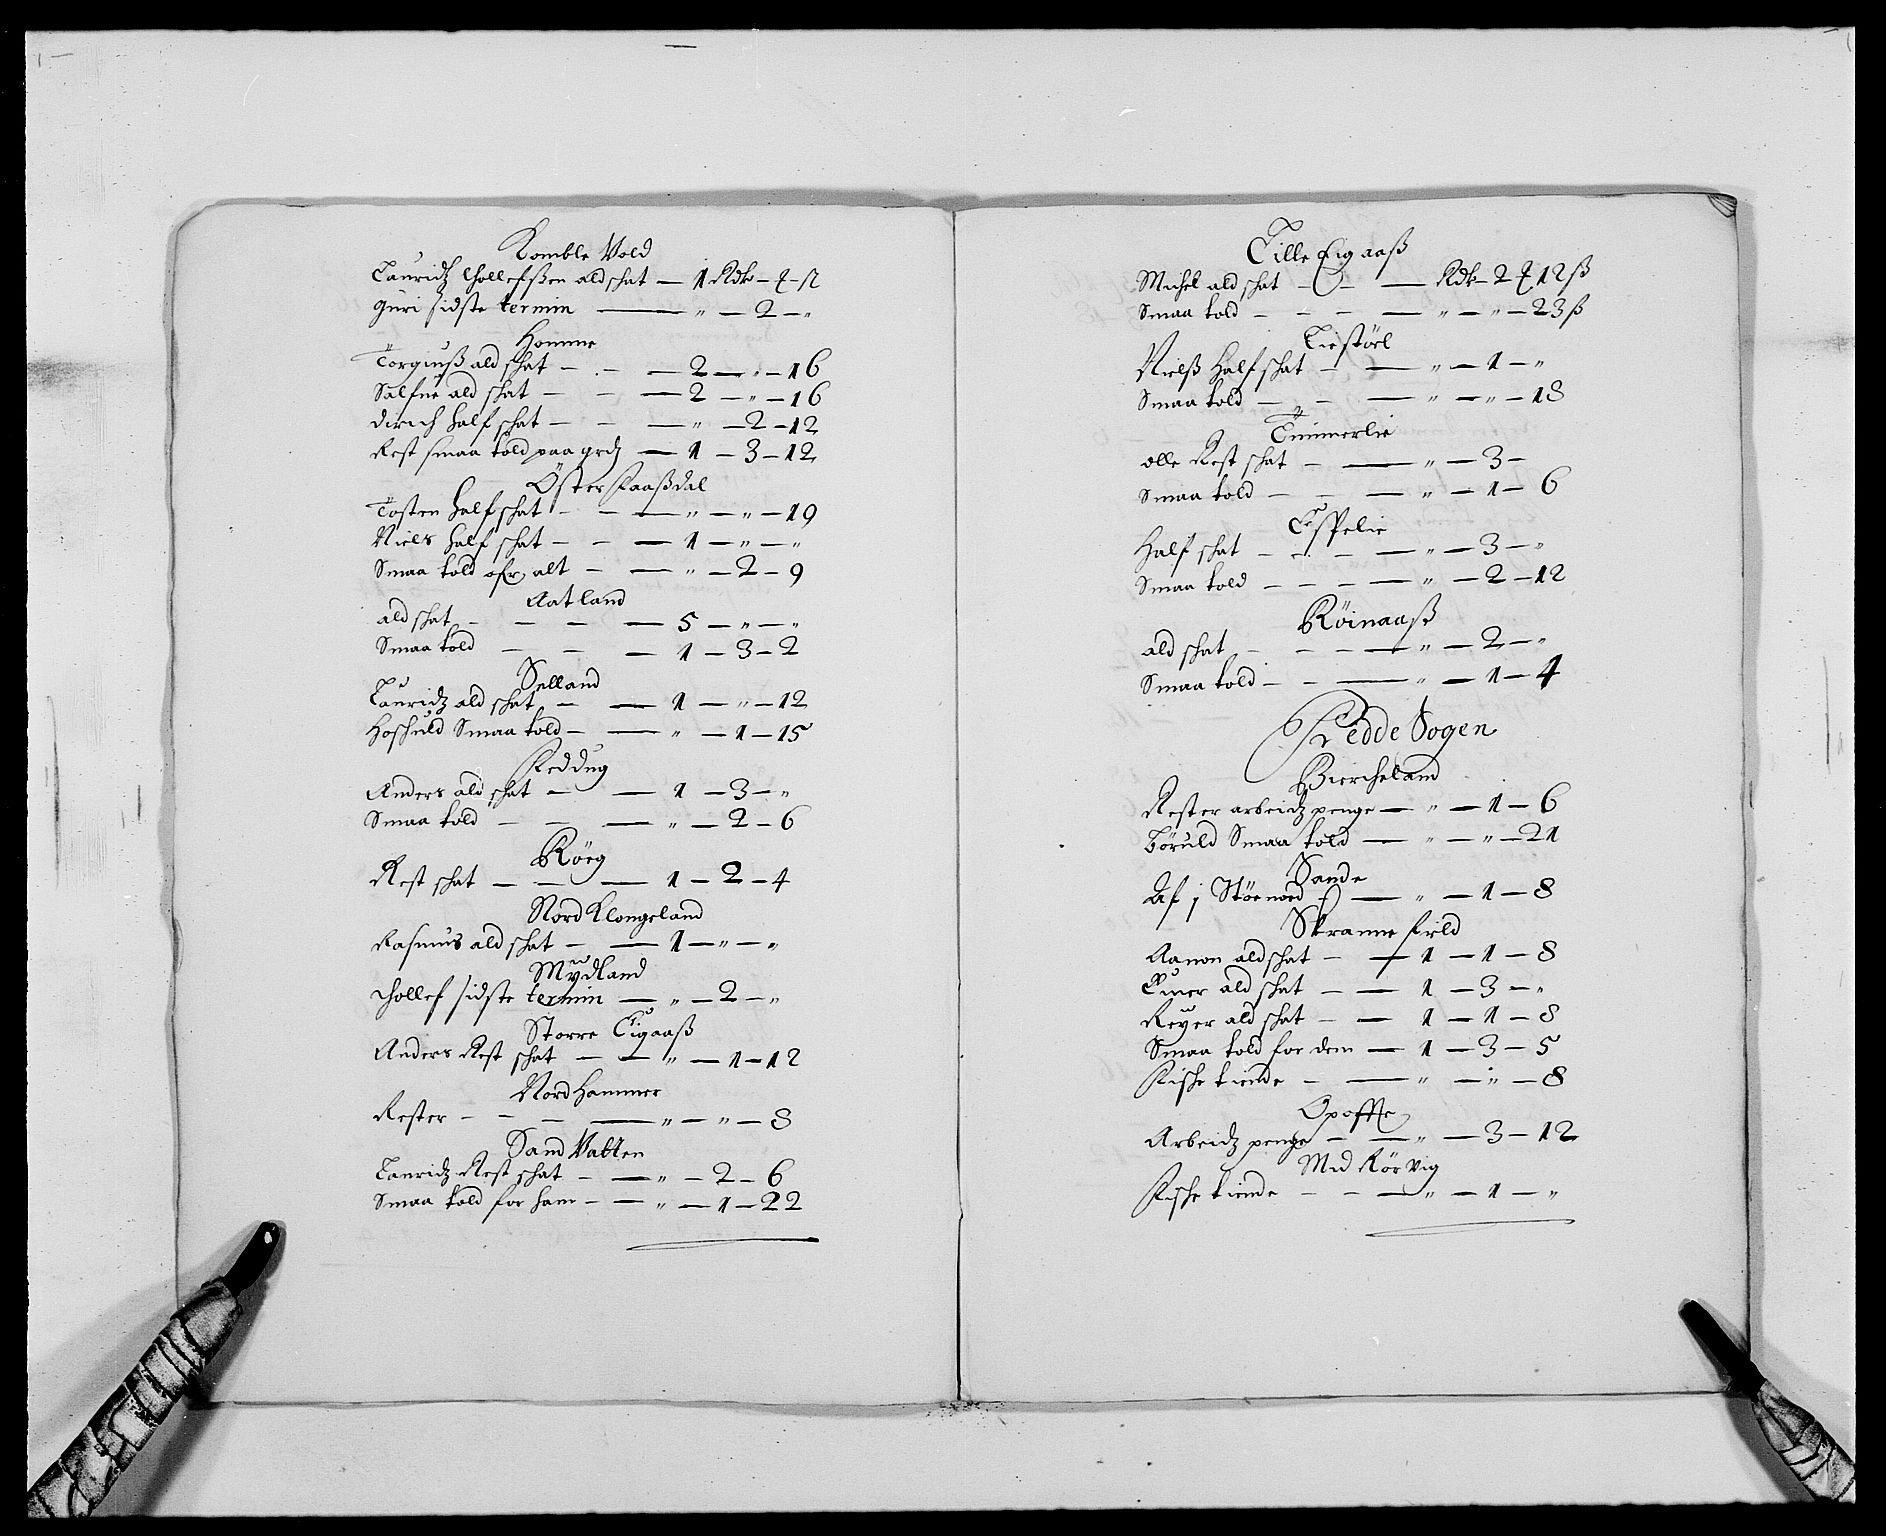 Komble Vold
Lauridtz Thollefßen ald schat — 1 Rdr – –
Guri sidste termin — „ — 2 – „
Homme
Torgiuß ald schat – – — 2 — „ — 16
Salfue ald schat – – — 2 – „ — 16
Dirich half schat – – — „ — 2 – 12
Rest smaa told paa — 1 – 3 – 12
Öster Faaßdal
Tosten half schat – – — „ — „ — 19
Niels half schat – – — 1 – „ — „
Smaa told ofr alt – — „ — 2 – 9
Aatland
ald schat – – – — 5 — „ — „
Smaa told – – — 1 – 3 – 2
Selland
Lauridtz ald schat – — 1 — „ — 12
Hoskuld Smaa told – — „ — 1 – 15
Reddug
Anders ald schat – — 1 — 3 – „
Smaa told – – — „ — 2 – 6
Röeg
Rest schat – – — 1 – 2 – 4
Nord Klongeland
Rasmus ald schat – — 1 – „ – „
Mydland
Thollef sidste termin — „ — 2 – „
Storre Eigaaß
Anders Rest schat – — „ — 1 – 12
Nord Hammer
Rester – – – — „ — „ — 8
Sand Vatten
Lauridtz Rest schat – — „ – 2 – 6
Smaa told for ham – — „ — 1 – 22
Lille Eigaaß
Michel ald schat – – — Rdr – 2 12 ß
Smaa told – – – — „ — „ — 23 ß
Liestöel
Nielß Half schat – — „ — 1 – „
Smaa told – – — „ — „ — 18
Timmerlie
olle Rest schat – — „ — 3 –
Smaa told – – — „ — 1 – 6
Espelie
Half schat – – – — „ — 3 – „
Smaa told – – – — „ — 2 – 12
Röinaaß
ald schat – – – — „ — 2 – „
Smaa told – – — „ — 1 – 4
Fedde Sogen
Bircheland
Rester arbeidtz penge — „ — 1 – 6
Töruld Smaa told — „ — „ — 21
Sande
Af j Störnoed — „ — 1 – 8
Skranne field
Aanon ald schat – — 1 — 1 – 8
Einer ald schat – — 1 – 3 – „
Reyer ald schat – — 1 — 1 – 8
Smaa told for dem — 1 — 3 – 5
Fische tiende – — „ — „ — 8
Opoffte
Arbeidtz penge – — „ — 3 – 12
Med Rörvig
Fische tiende – – — „ — 1 – „